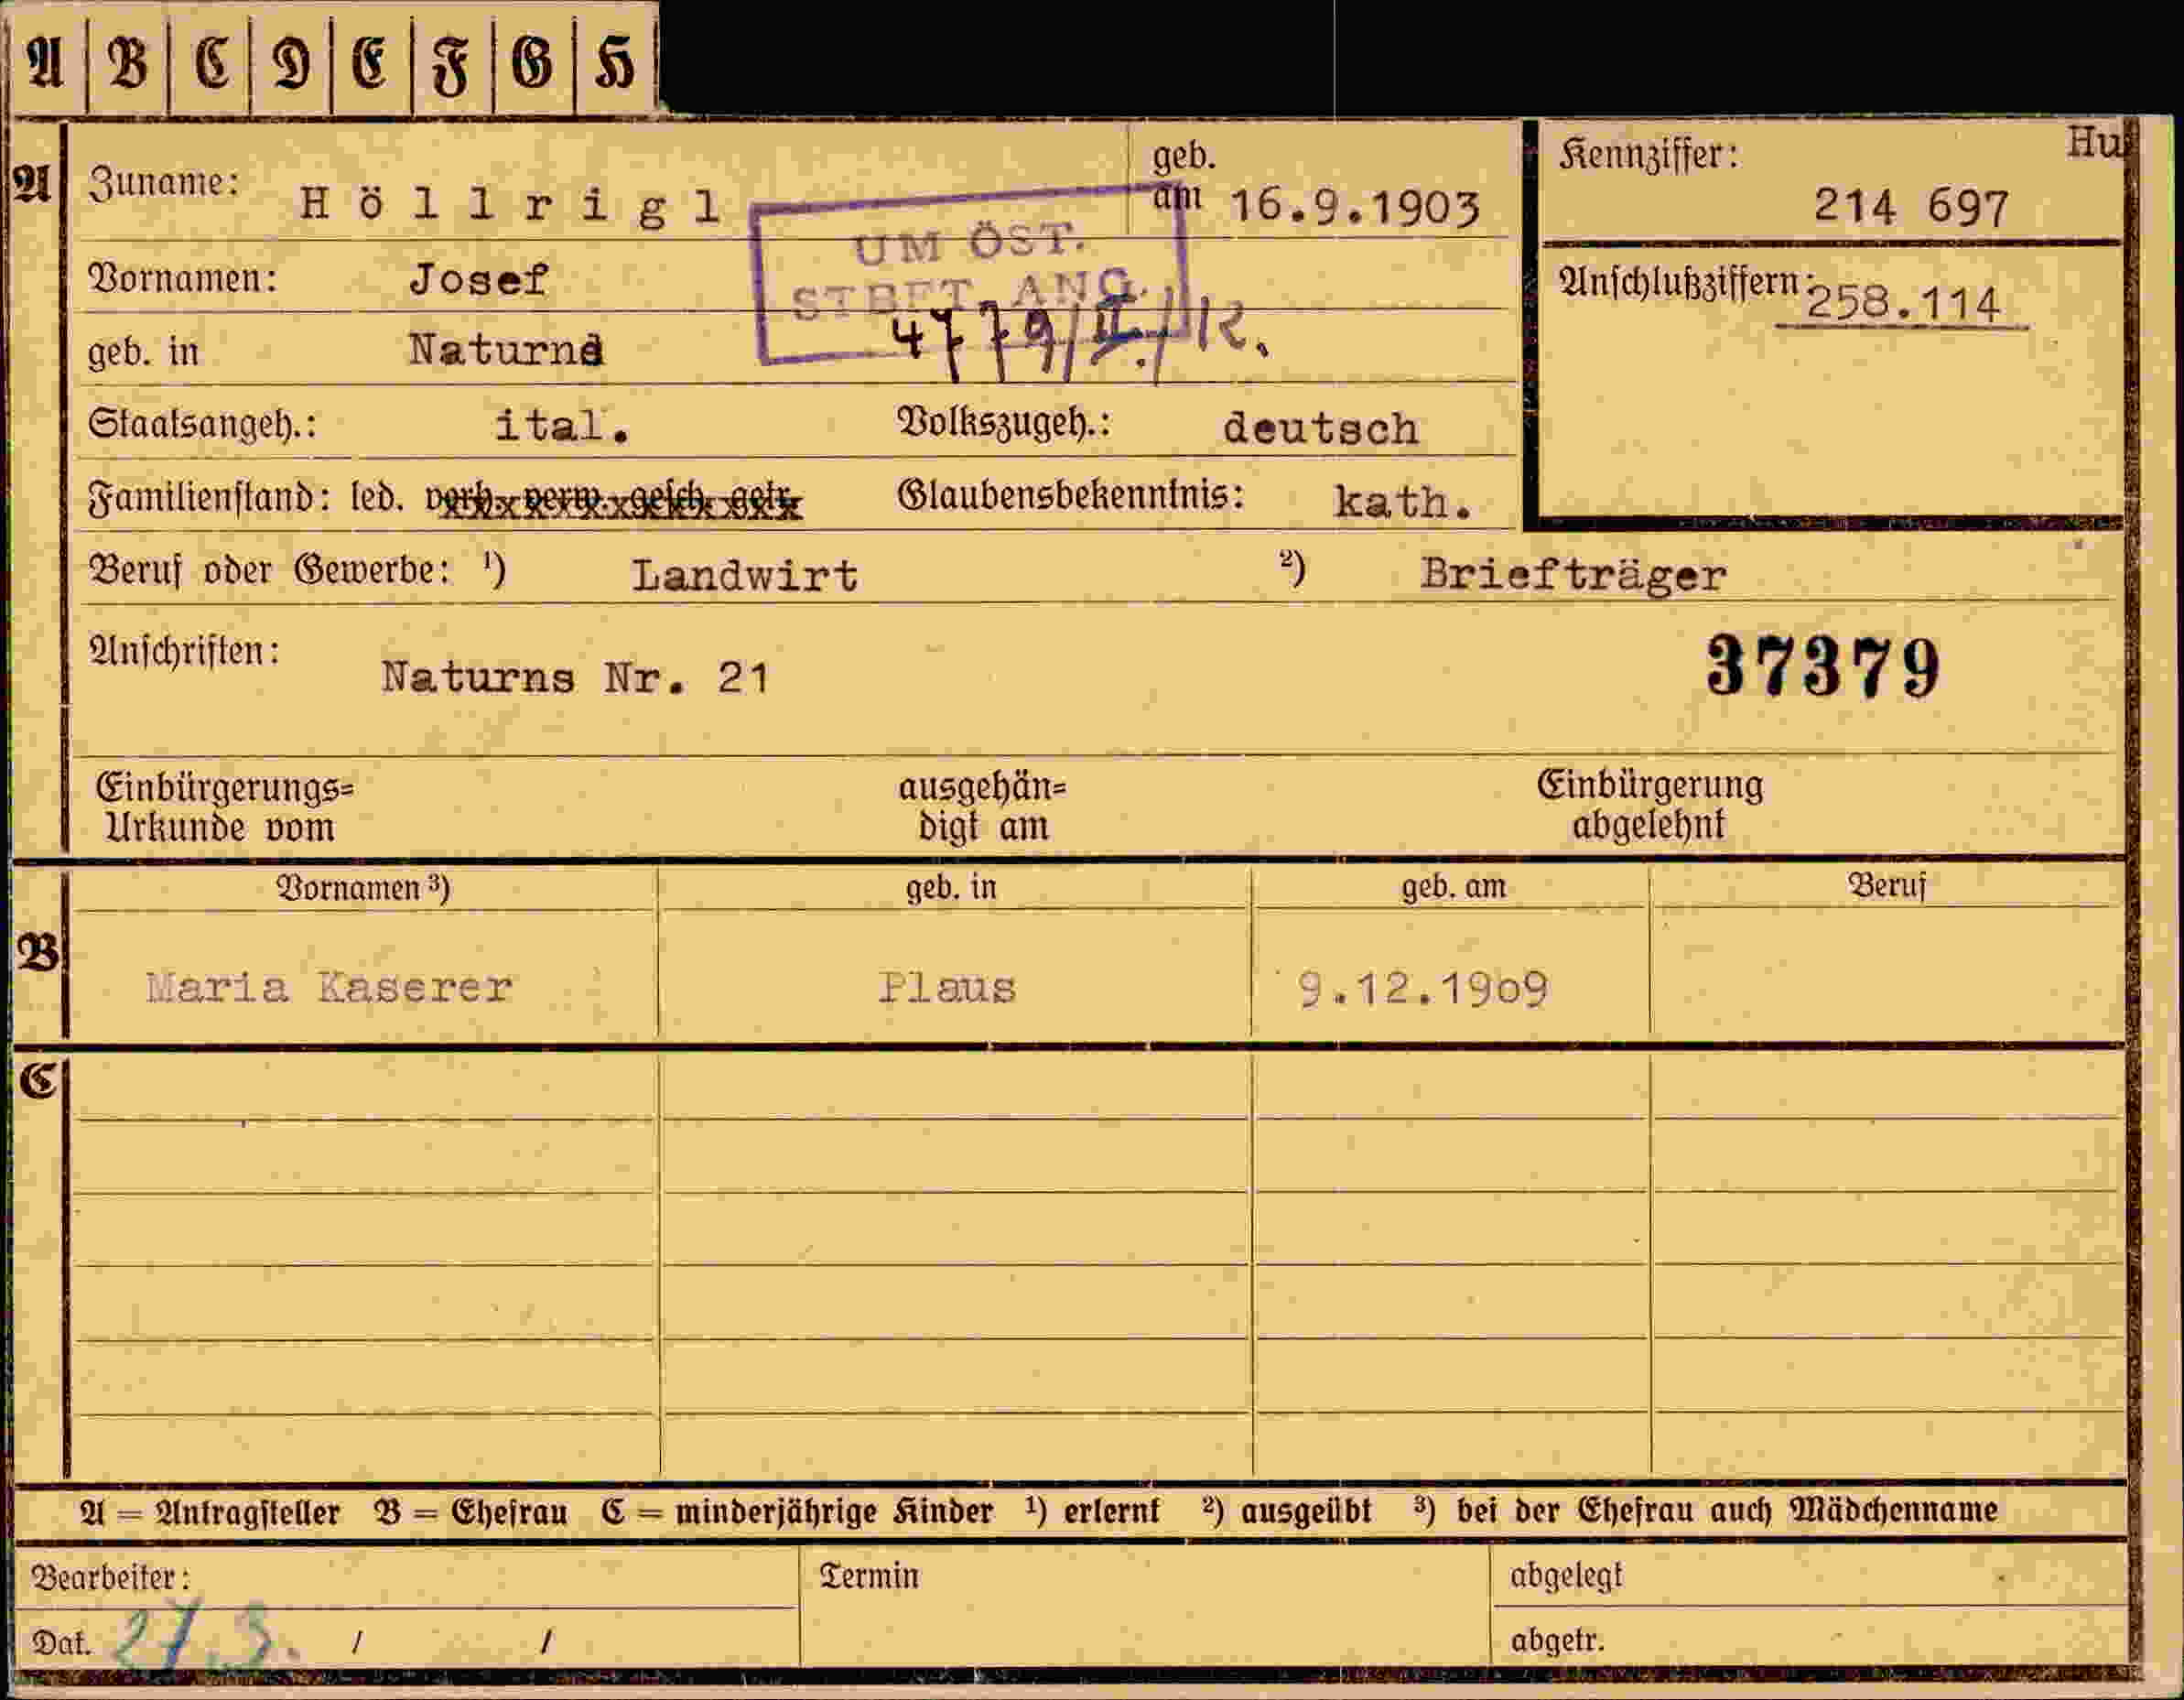 A B C D E F G H
A Zuname: Höllrigl geb. am 16.9.1903 Kennziffer: Hu
214 697
UM ÖST.
STBFT. ANG.
Vornamen: Josef Anschlußziffern: 258.114
geb. in Naturnd
Staatsangeh.: ital. Volkszugeh.: deutsch
Familienstand: led. verh. verw. gesch. getr. Glaubensbekenntnis: kath.
Beruf oder Gewerbe: ¹) Landwirt ²) Briefträger
Anschriften: Naturns Nr. 21 37379
Einbürgerungs= ausgehän= Einbürgerung
Urkunde vom digt am abgelehnt
Vornamen ³) geb. in geb. am Beruf
B Maria Kaserer Plaus 9.12.1909
C
A = Antragsteller B = Ehefrau C = minderjährige Kinder ¹) erlernt ²) ausgeübt ³) bei der Ehefrau auch Mädchenname
Bearbeiter: Termin abgelegt
Dat. 27.3. / / abgetr.